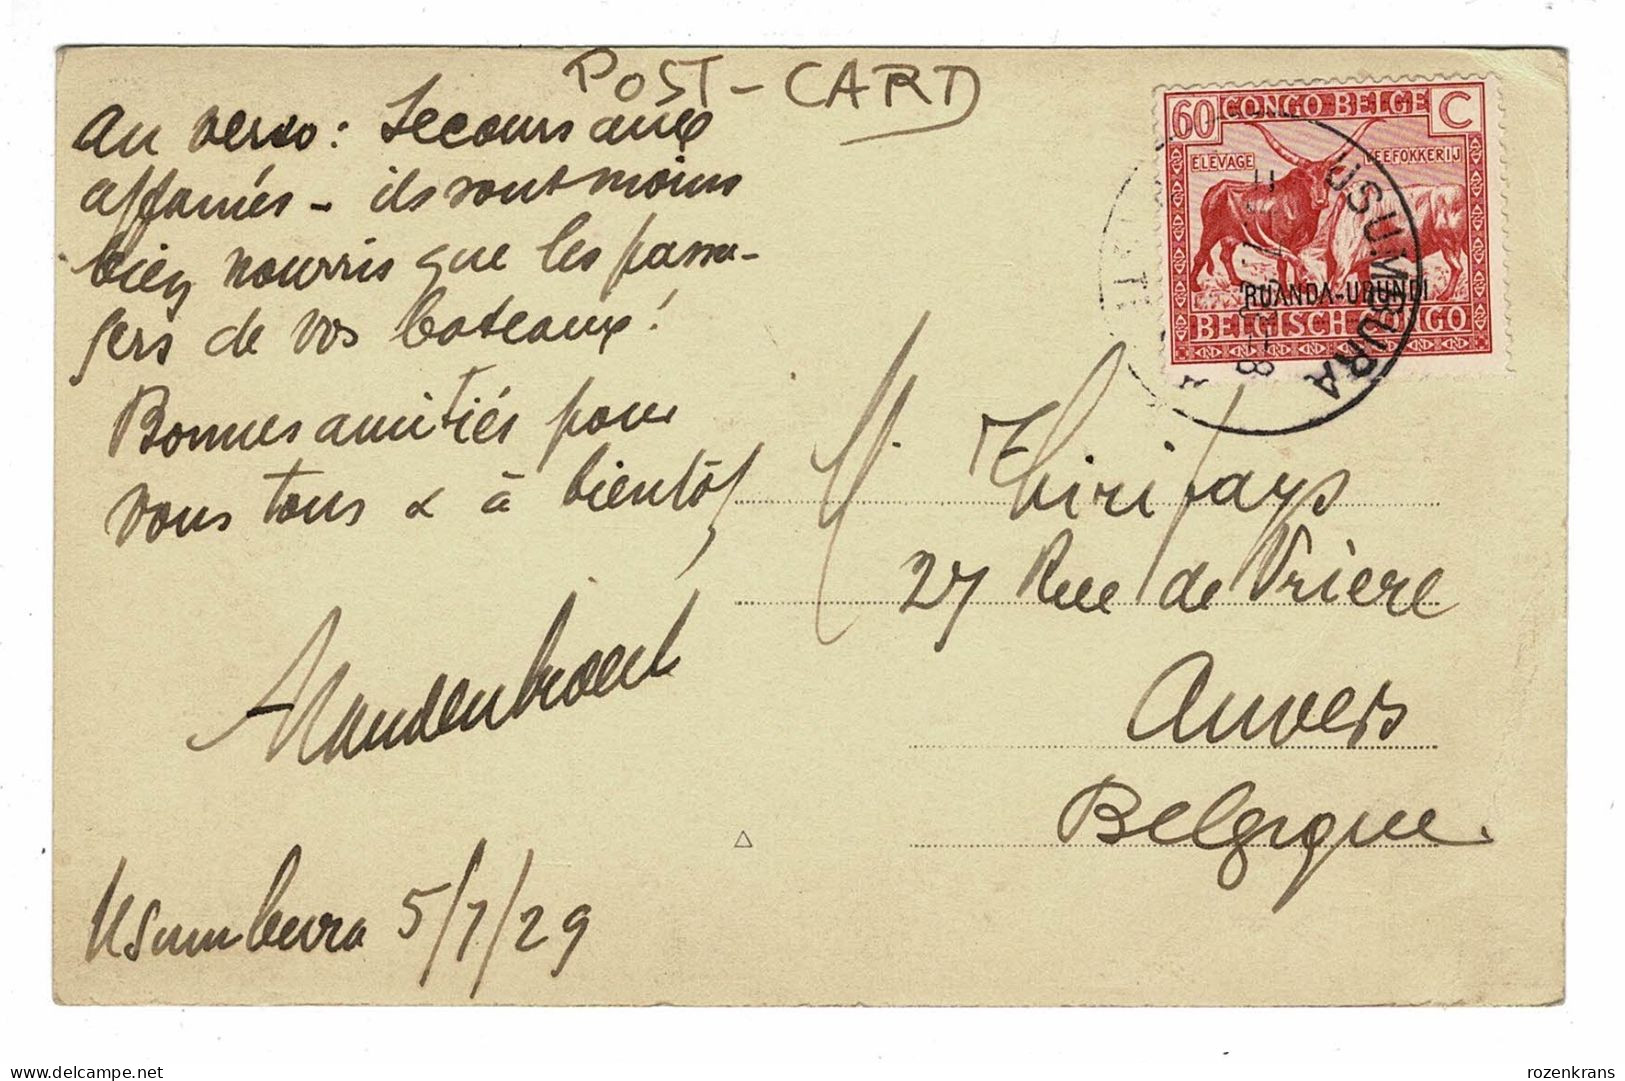 POST-CARD
Au verso : Secours aux
affamés - ils sont moins
bien nourris que les passa-
gers de vos bateaux !
Bonnes amitiés pour
vous tous & à bientôt,
Vandenbroeck
Usumbura 5/7/29
60 CONGO BELGE C
ELEVAGE VEEFOKKERIJ
RUANDA-URUNDI
BELGISCH CONGO
USUMBURA
M. Thirifays
27 Rue de Vrière
Anvers
Belgique.
delcampe.net
rozenkrans